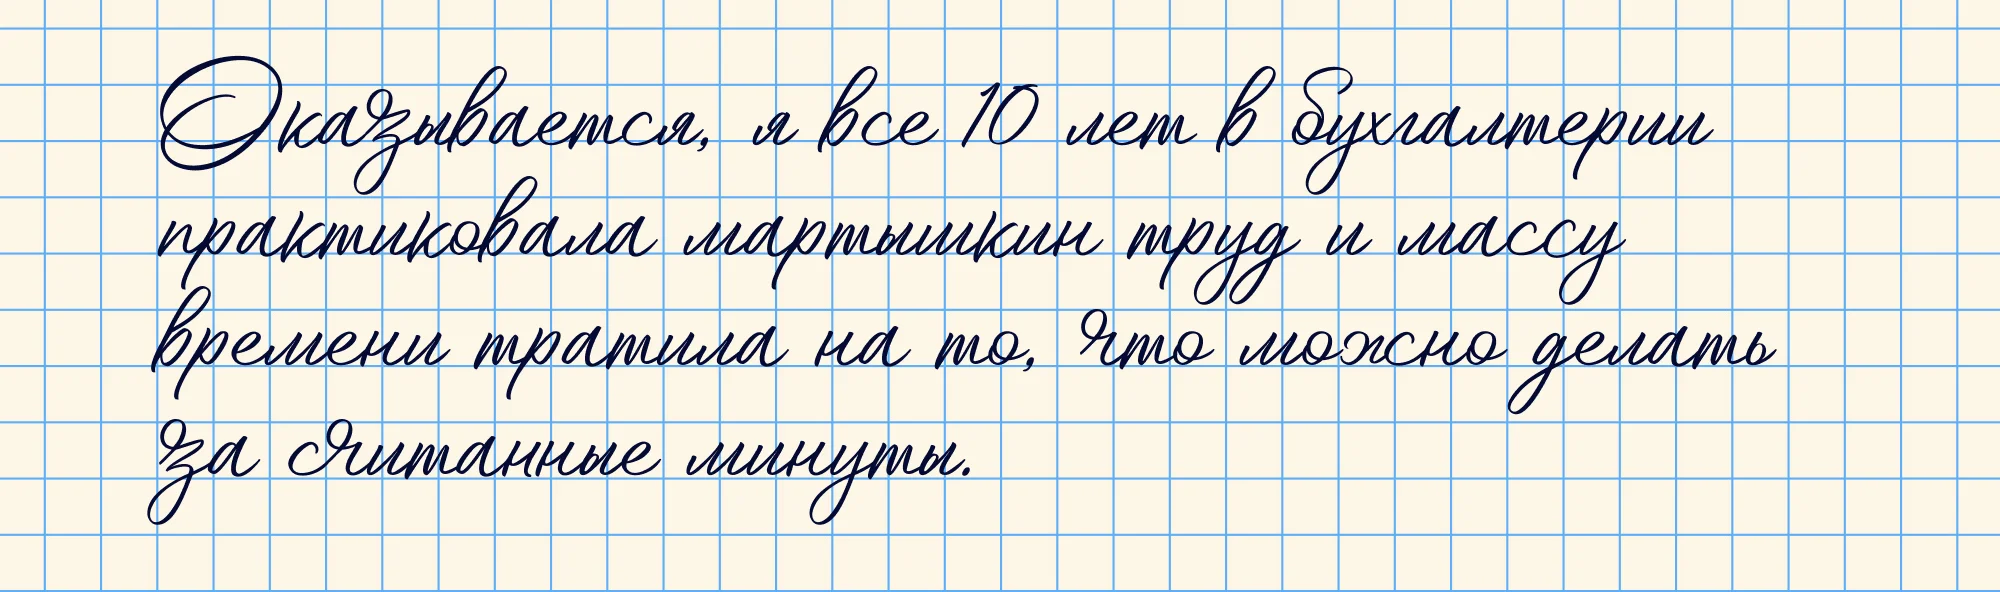 Оказывается, я все 10 лет в бухгалтерии
практиковала мартышкин труд и массу
времени тратила на то, что можно делать
за считанные минуты.